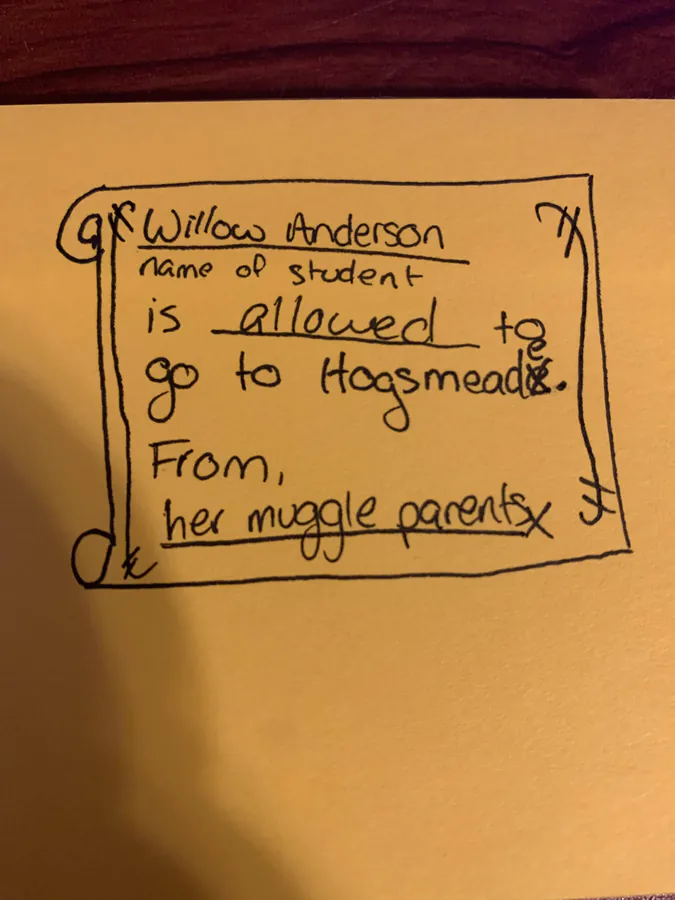 Willow Anderson
name of student
is allowed to
go to Hogsmeade.
From,
her muggle parents x